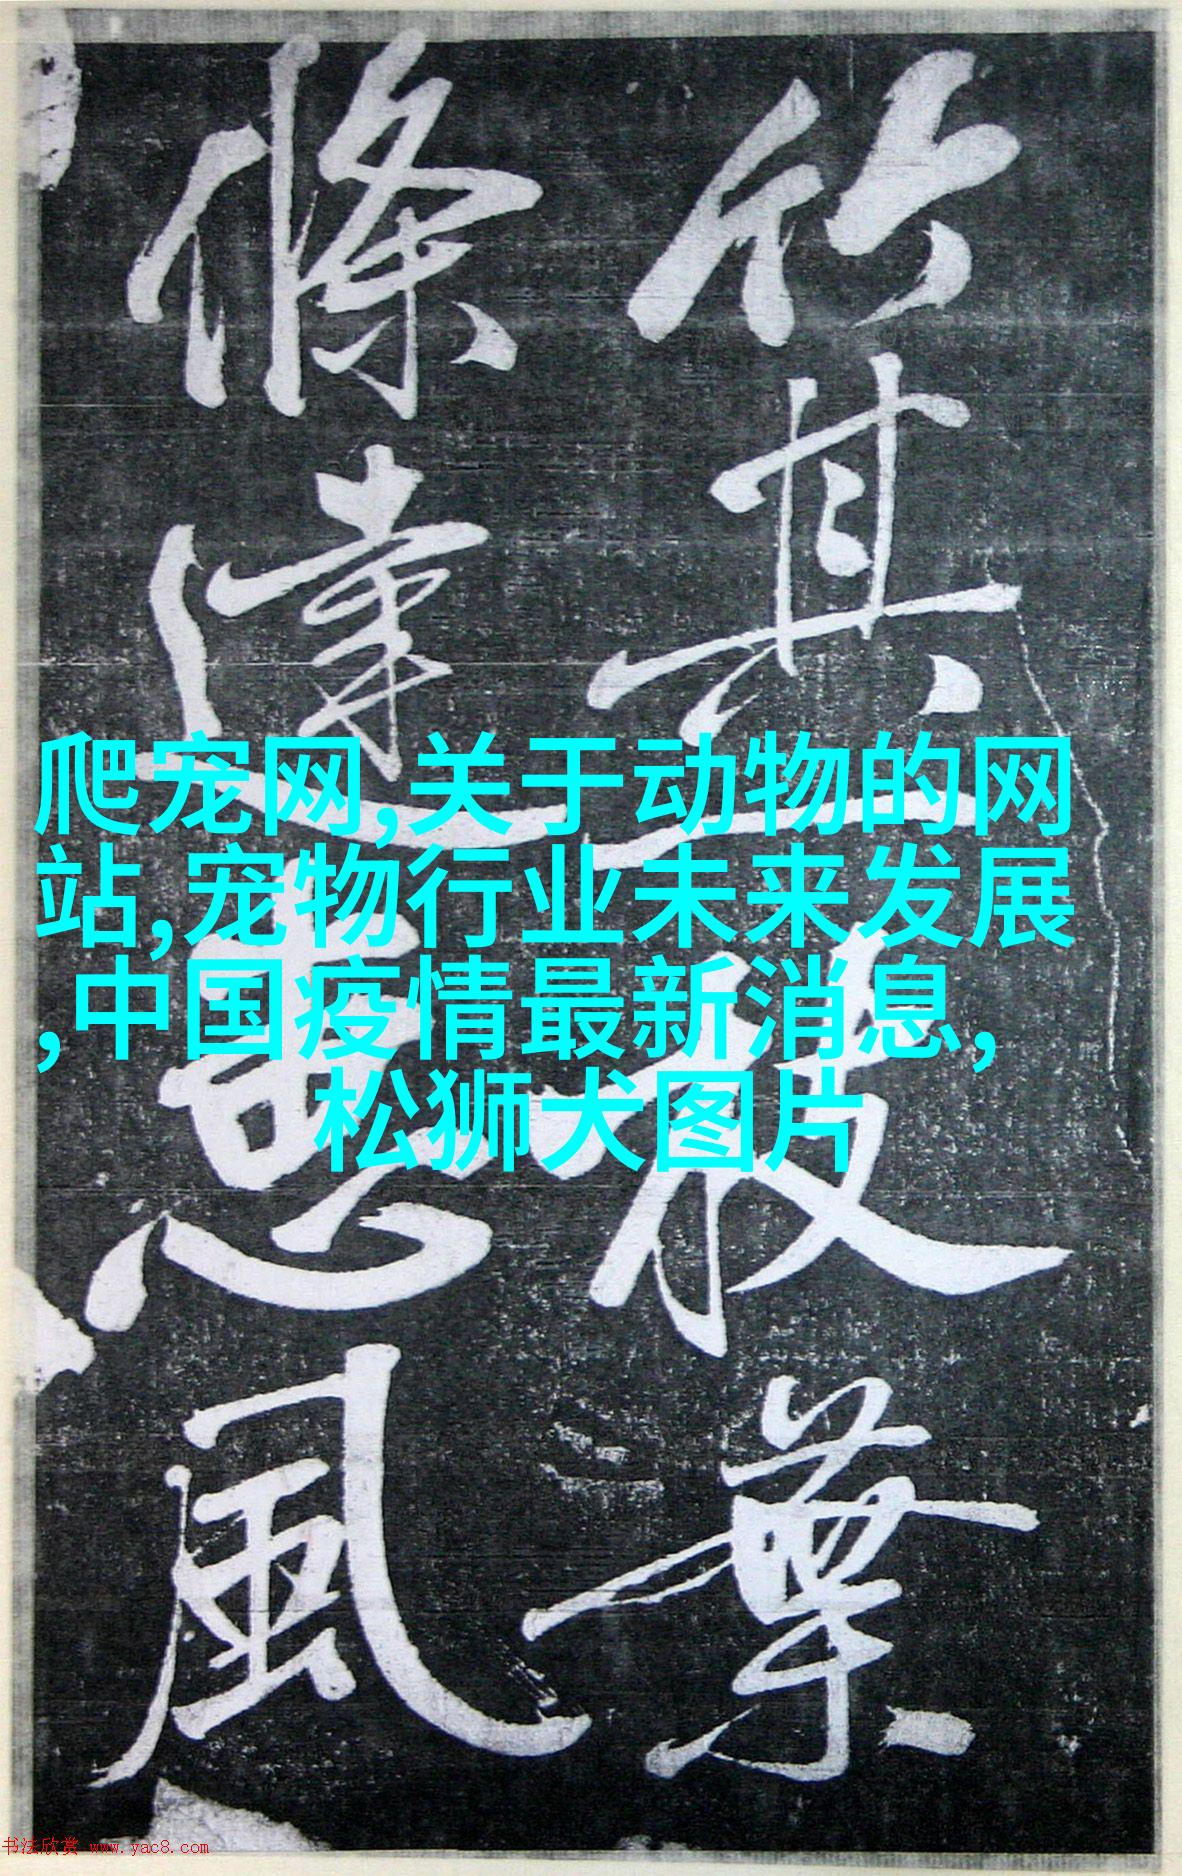 竹其枝葉
條達惠風
爬宠网,关于动物的网
站,宠物行业未来发展
,中国疫情最新消息,
松狮犬图片
书法欣赏 www.yac8.com